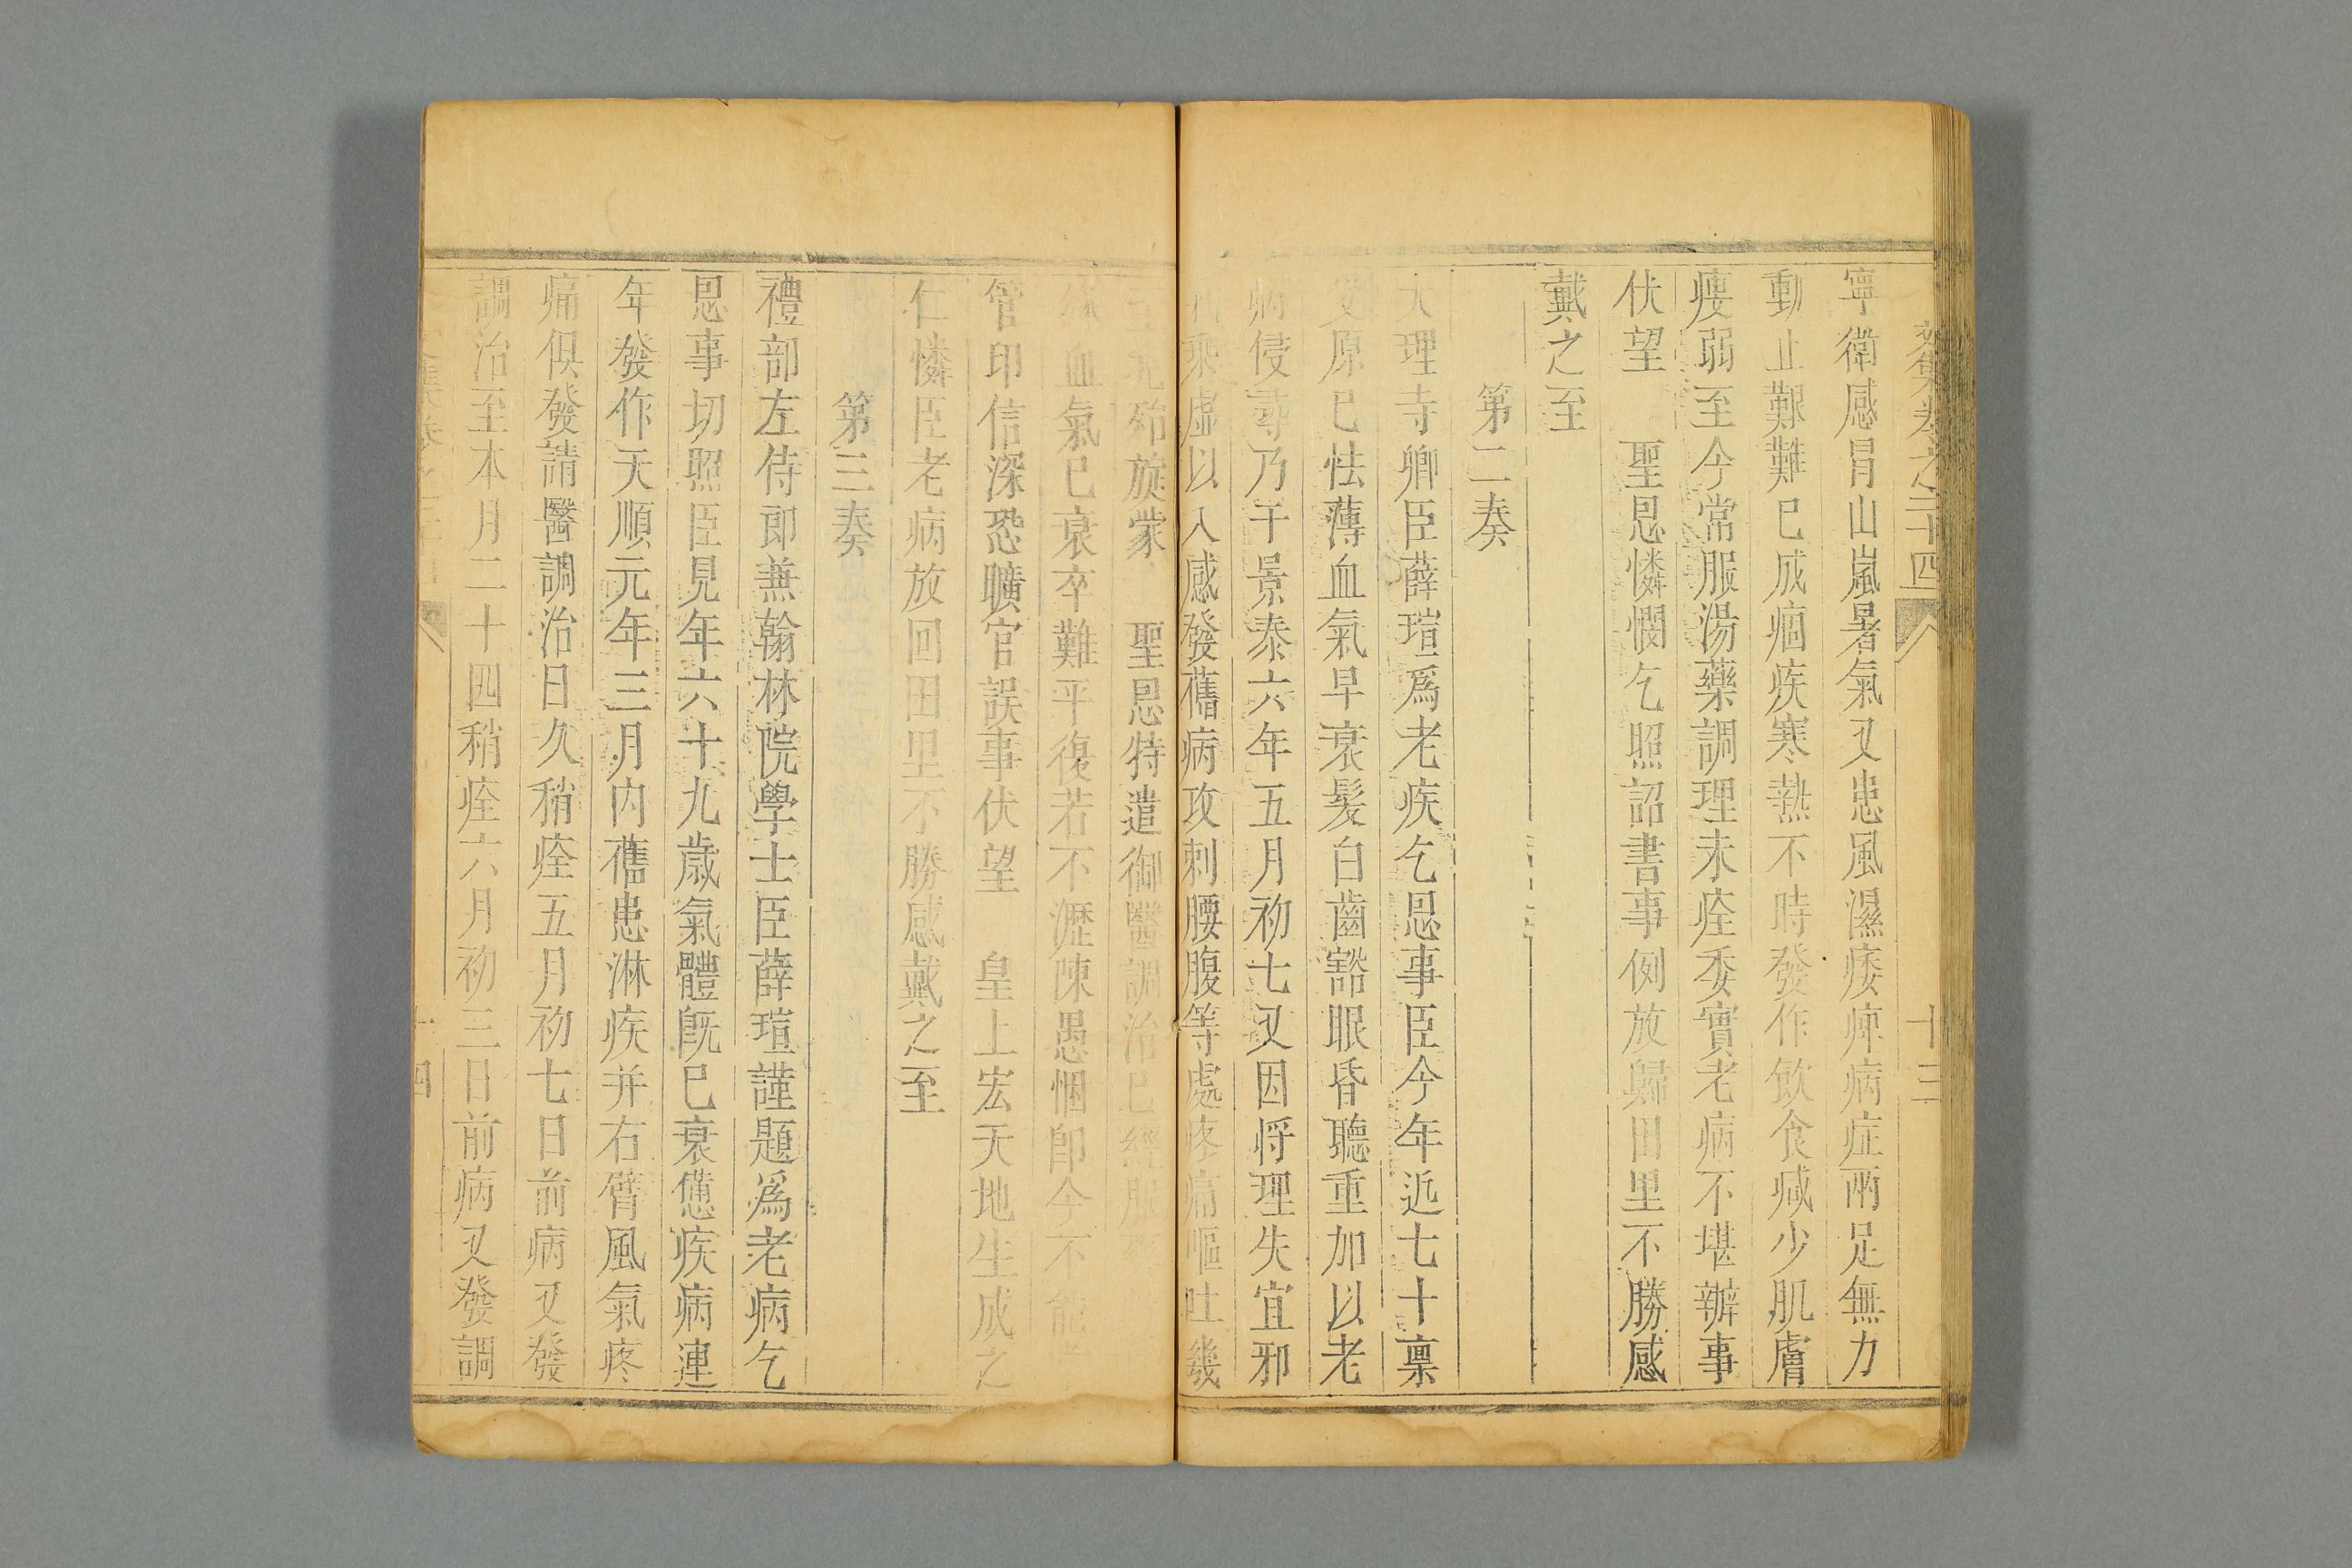 文集卷之二十四
十三
寧衛感冒山嵐暑氣又患風濕痿痺病症兩足無力
動止艱難已成痼疾寒熱不時發作飲食减少肌膚
瘦弱至今常服湯藥調理未痊委實老病不堪辦事
伏望 聖恩憐憫乞照詔書事例放歸田里不勝感
戴之至
第二奏
大理寺卿臣薛瑄爲老疾乞恩事臣今年近七十稟
受原已怯薄血氣早衰髮白齒豁眼昏聽重加以老
病侵尋乃于景泰六年五月初七又因將理失宜邪
氣乘虛以入感發舊病攻刺腰腹等處疼痛嘔吐幾
殆旋蒙 聖恩特遣御醫調治已經服
血氣已衰卒難平復若不瀝陳愚悃即今不能
管印信深恐曠官誤事伏望 皇上宏天地生成之
仁憐臣老病放回田里不勝感戴之至
第三奏
禮部左侍郎兼翰林院學士臣薛瑄謹題爲老病乞
恩事切照臣見年六十九歲氣體旣已衰憊疾病連
年發作天順元年三月內舊患淋疾并右臂風氣疼
痛俱發請醫調治日久稍痊五月初七日前病又發
調治至本月二十四稍痊六月初三日前病又發調
十四